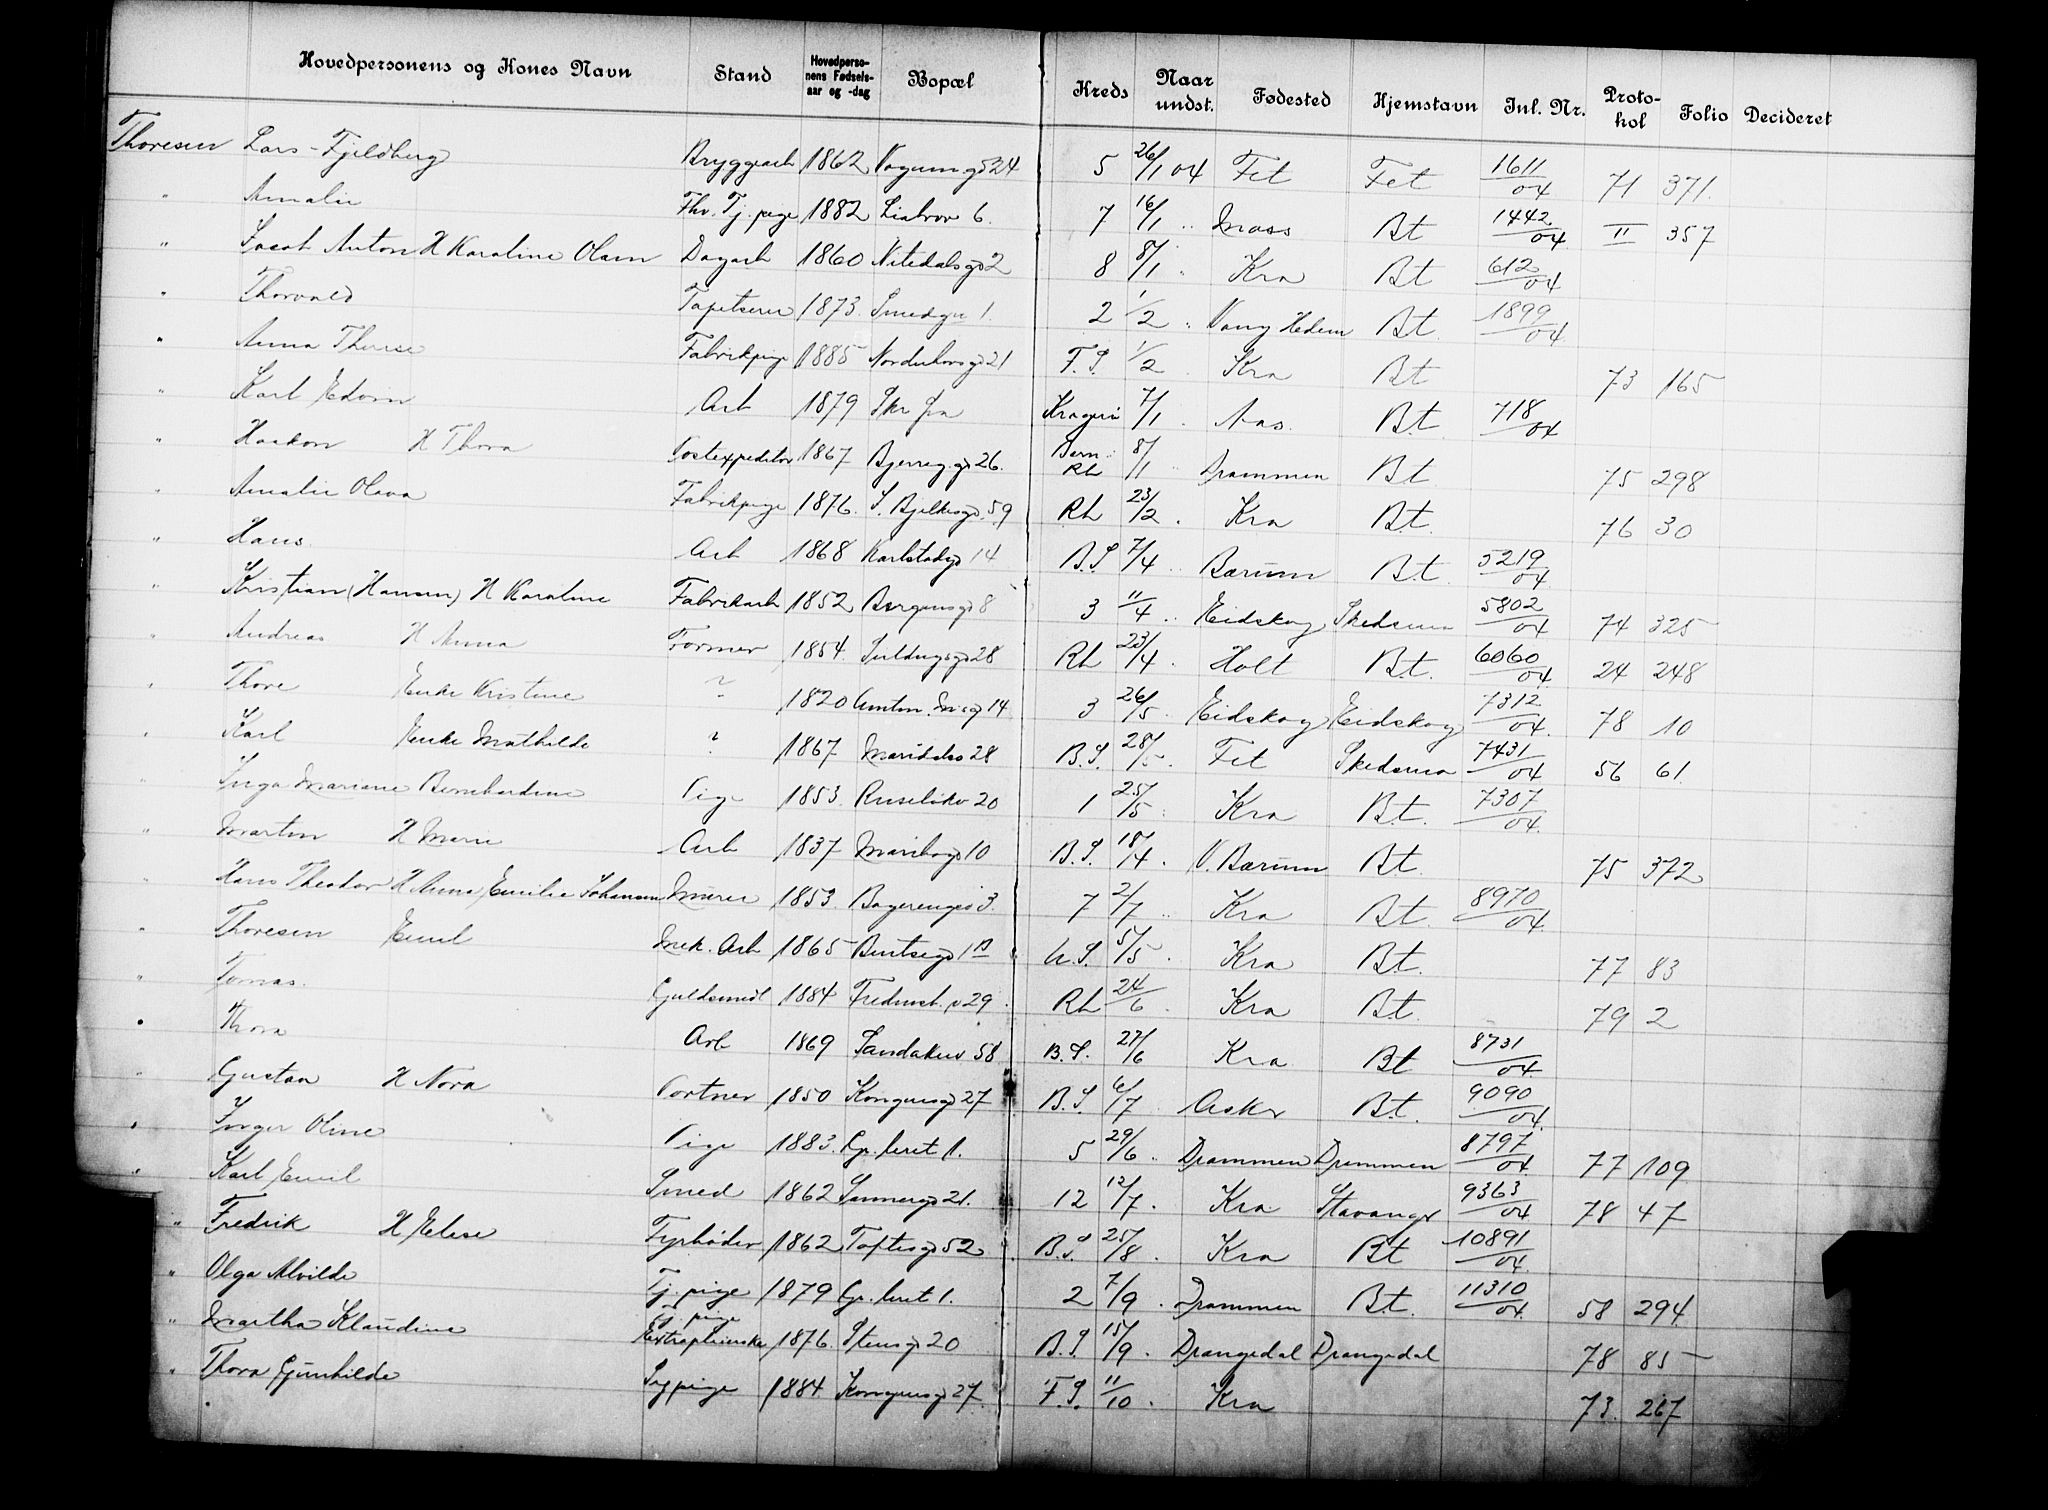 Hovedpersonens og Kones Navn Stand Hovedperso-nens Fødsels-aar og -dag Bopæl Kreds Naar undst. Fødested Hjemstavn Inl. Nr. Proto-kol Folio Decideret
Thoresen Lars Fjeldberg Bryggearb 1862 24 5 26/1 04 Fet Fet 1611/04 71 371.
" Amalie Fhv. Tj. pige 1882 Liabrov 6. 7 16/1 " Moss Bt 1442/04 II 357
" Jacob Anton H Karoline Olsen Dagarb 1860 Nitedalsgd 2 8 8/1 " Kra Bt 612/04
" Thorvald Tapetserer 1873. Smedgn 1. 2 1/2 " Vang Hedem Bt. 1899/04
" Anna Therese Fabrikpige 1885 Norderhovsgd 21 F.S. 1/2 Kra Bt 73 165
" Karl Edvin Arb 1879 Skr fra Kragerø 7/1 . Aas. Bt. 718/04
" Haakon H Thora Postexpeditør 1867 Bjerreg.gd 26. Barn Rh 8/1 " Drammen Bt 75 298
" Amalie Olava Fabrikpige 1876. S. Bjelkesgd. 59 Rh 23/2 . Kra Bt. 76 30
" Hans. Arb 1868 Karlstadgd 14 B.S. 7/4 " Bærum Bt. 5219/04
" Kristian (Hansen) H Karoline Fabrikarb 1852 Bergensgd 8 3 11/4 " Eidskog Skedsmo 5802/04 74 325
" Andreas H Anna Former 1854. 28 Rh 23/4 . Holt Bt. 6060/04. 24 248
" Thore Enke Kristine ? 1820 Amtm. M.sgd 14 3 26/5 . Eidskog Eidskog 7312/04. 78 10
" Karl Enke Mathilde ? 1867 Maridalsv 28 B.S. 28/5 . Fet Skedsmo 7431/04 56 61.
" Inga Mariane Bernhardine Pige 1853. Ruseløkv 20 1 25/5 . Kra Bt. 7307/04.
" Martin H Marie Arb 1837 Maribogd 10 B.S. 18/4 . V. Bærum Bt. 75 372
" Hans Theodor H Anna Emilie Johansen Murer 1853. 3. 7 2/7 " Kra Bt. 8970/04.
" Thoresen Emil Mek. Arb 1865 Bentsegd 1 B U.S. 5/5 . Kra Bt. 77 83
" Tomas. Guldsmed 1884 Fredensb. v 29. Rh 24/6 . Kra Bt. 79 2
" Thora Arb 1869 Sandakerv 58 B.S. 27/6 Kra Bt 8731/04.
" Gustav H Nora Portner 1850 Kongensgd 27 B.S. 6/7 . Asker Bt. 9090/04.
" Inger Oline Pige 1883. Gr. leret 1. 5 29/6 " Drammen Drammen 8797/04. 77 109
" Karl Emil Smed 1862 Sannergd 21. 12 12/7 . Kra Stavanger 9363/04 78 47
" Fredrik H Elise Fyrbøder 1862 Toftesgd 52 B.S. 25/8 . Kra Bt 10891/04.
" Olga Alvilde Tj. pige 1879 Gr. leret 1. 2 7/9 . Drammen Bt. 11310/04. 58 294.
" Martha Klaudine Tj. pige 1876. Stensgd 20 B.S. 15/9 . Drangedal Drangedal 78 85
" Thora Gunhilde Sypige 1884 Kongensgd 27. F.S. 11/10 . Kra 73. 267